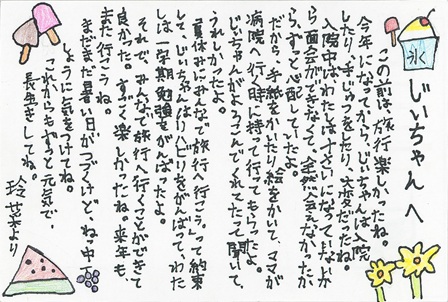 氷
じぃちゃんへ
この前は、旅行楽しかったね。
今年になってから、じぃちゃんは入院
したり、手じゅつをしたり、大変だったね。
入院中は、わたしは小さいになってしまったか
ら面会ができなくて、全然会えなかったか
ら、ずっと心配していたよ。
だから、手紙をかいたり絵をかいて、ママが
病院へ行く時に持って行ってもらったよ。
じぃちゃんがよろこんでくれてたって聞いて、
うれしかったよ。
「夏休みにみんなで旅行へ行こう。」って約束
して、じぃちゃんはリハビリをがんばって、わた
しは一学期勉強をがんばったよ。
それで、みんなで旅行へ行くことができて
良かった。すごく楽しかったね。来年も
また行こうね。
まだまだ暑い日がつづくけど、ねっ中
しょうに気をつけてね。
これからもずっと元気で、
長生きしてね。
玲菜より